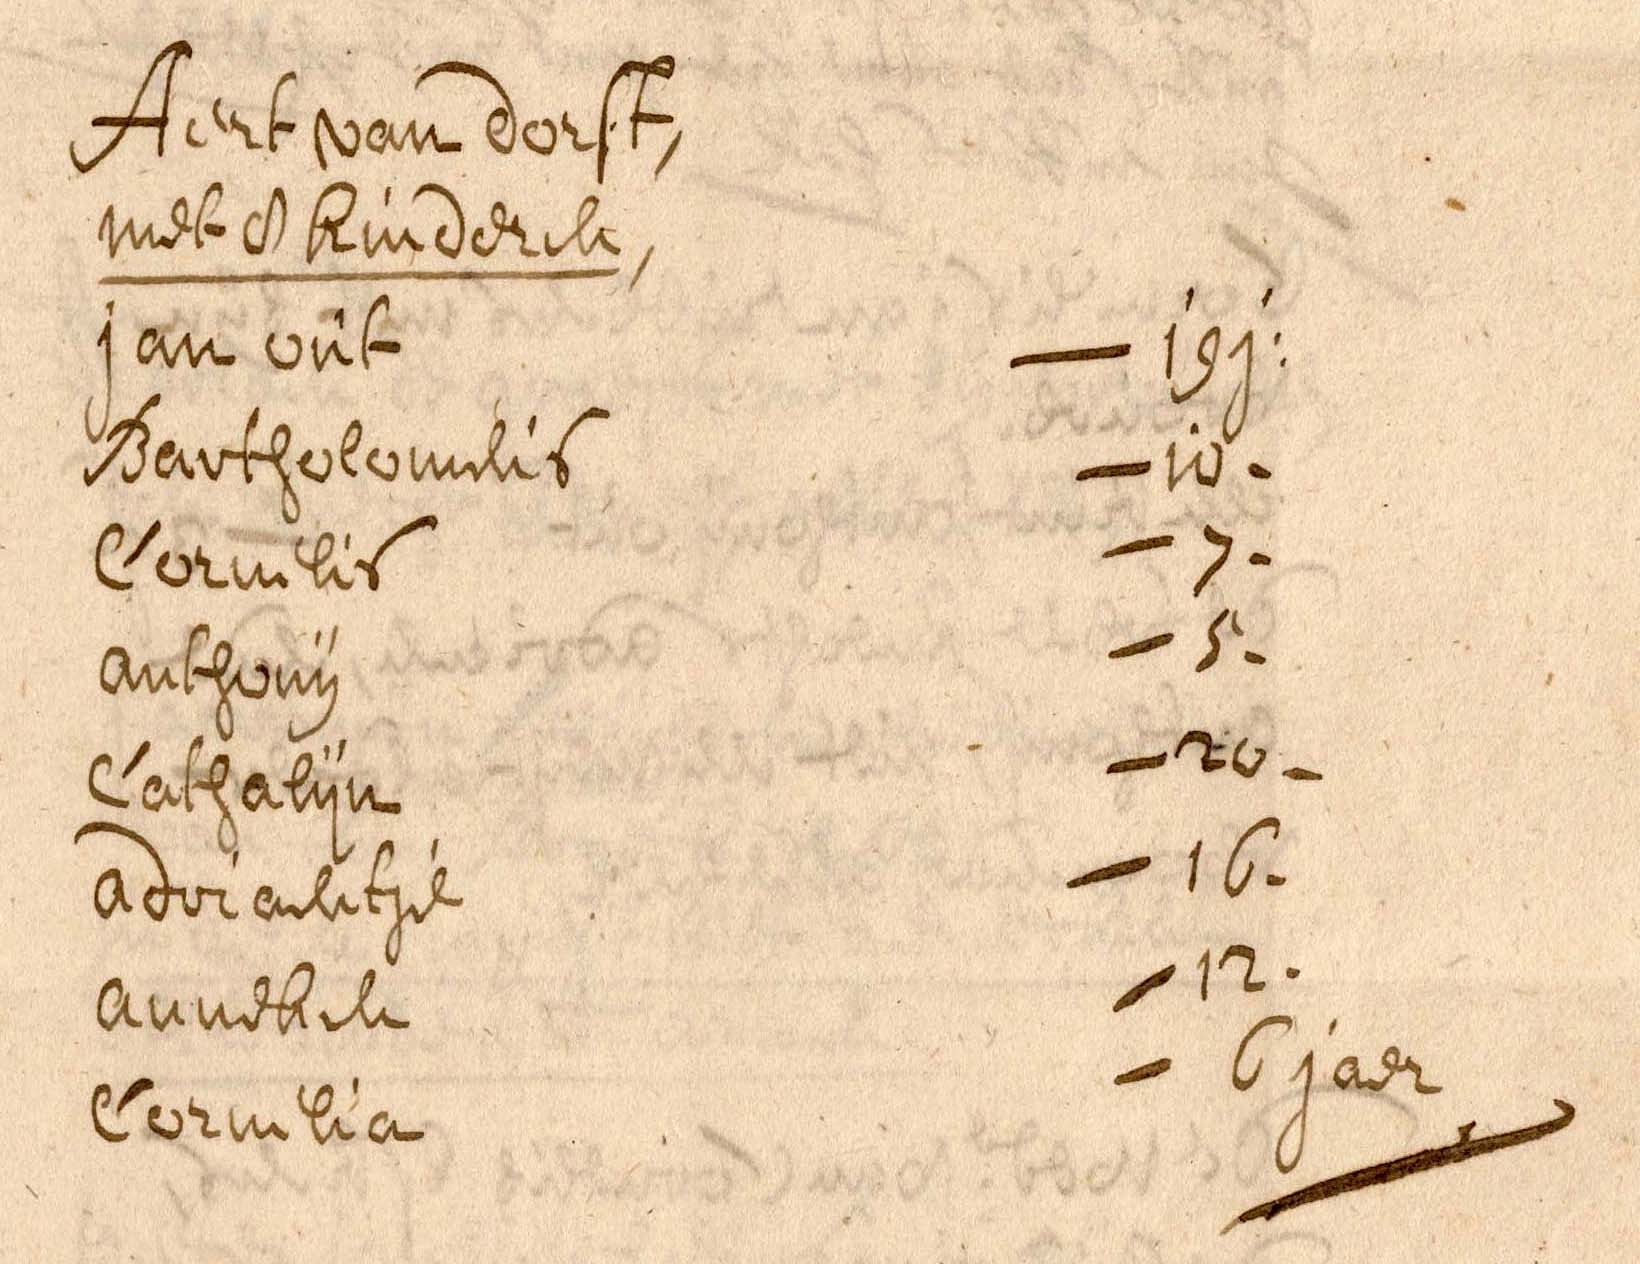 Aert van Dorst,
met 8 kinderen,
jan out — 19 j:
Bartholomeus — 10 -
Cornelis — 7 -
anthonij — 5 -
Cathalijn — 20 -
adriaentje — 16 -
anneken — 12 -
Cornelia — 6 jaer